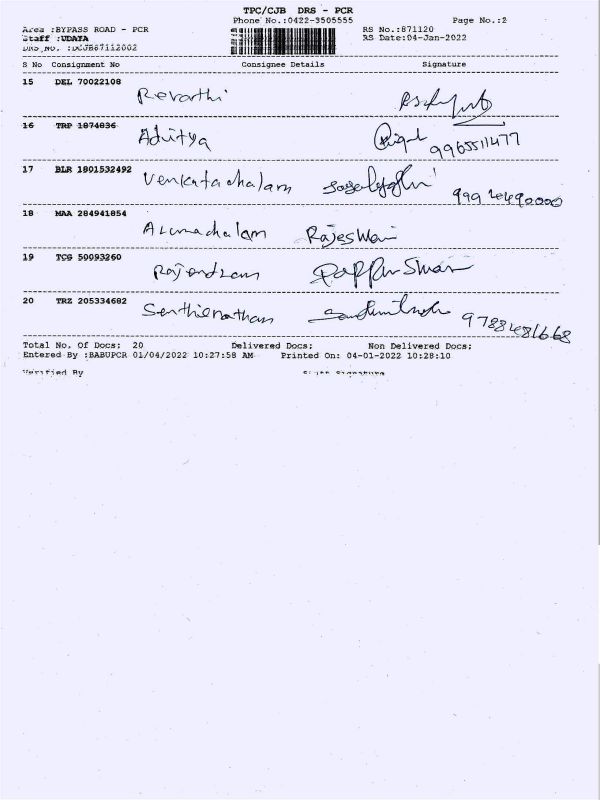 TPC/CJB DRS - PCR
Phone No.:0422-3505555 Page No.:2
Area :BYPASS ROAD - PCR RS No.:871120
Staff :UDAYA RS Date:04-Jan-2022
DRS No. :DCJB87112002
S No Consignment No Consignee Details Signature
15 DEL 70022108
Revarthi
16 TRP 1874836
Aditya 9965511477
17 BLR 1801532492
Venkatachalam
18 MAA 284941854
Arunachalam Rajeswari
19 TCG 50093260
Rajendran
20 TRZ 205334682
Senthilnathan 9788481668
Total No. Of Docs: 20 Delivered Docs: Non Delivered Docs:
Entered By :BABUPCR 01/04/2022 10:27:58 AM Printed On: 04-01-2022 10:28:10
Verified By